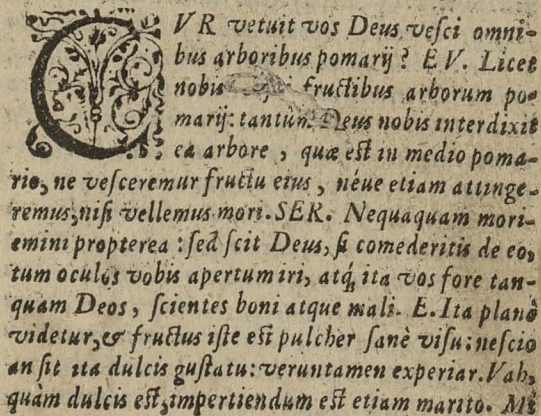 CVR vetuit vos Deus vesci omni-
bus arboribus pomarij? EV. Licet
nobis fructibus arborum po-
marij: tantùm Deus nobis interdixit
ea arbore, quæ est in medio poma-
rio, ne vesceremur fructu eius, néue etiam attinge-
remus, nisi vellemus mori. SER. Nequaquam mori-
emini propterea: sed scit Deus, si comederitis de eo,
tum oculos vobis apertum iri, atq́; ita vos fore tan-
quam Deos, scientes boni atque mali. E. Ita planè
videtur, & fructus iste est pulcher sanè visu: nescio
an sit ita dulcis gustatu: veruntamen experiar. Vah,
quàm dulcis est, impertiendum est etiam marito. Mi